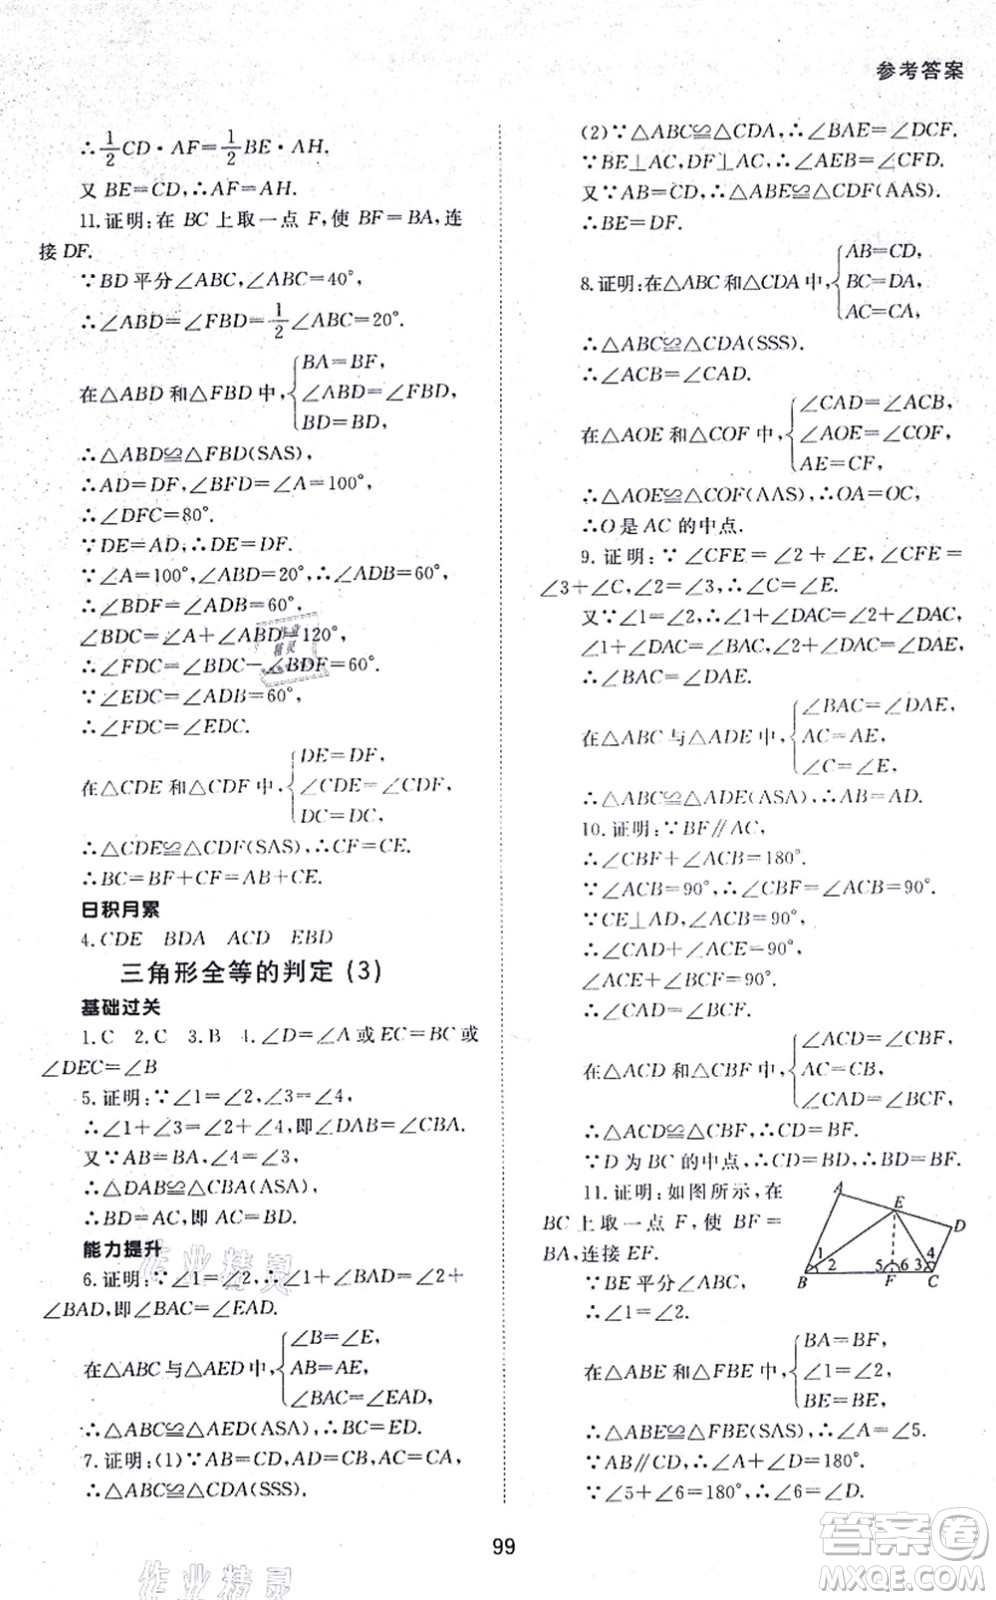 参考答案
∴1/2CD·AF=1/2BE·AH.
又 BE=CD,∴AF=AH.
11.证明:在 BC 上取一点 F,使 BF=BA,连
接 DF.
∵BD 平分∠ABC,∠ABC=40°,
∴∠ABD=∠FBD=1/2∠ABC=20°.
在△ABD 和△FBD 中,{BA=BF,
∠ABD=∠FBD,
BD=BD,
∴△ABD≌△FBD(SAS),
∴AD=DF,∠BFD=∠A=100°,
∴∠DFC=80°.
∵DE=AD,∴DE=DF.
∵∠A=100°,∠ABD=20°,∴∠ADB=60°,
∴∠BDF=∠ADB=60°,
∠BDC=∠A+∠ABD=120°,
∴∠FDC=∠BDC-∠BDF=60°.
∵∠EDC=∠ADB=60°,
∴∠FDC=∠EDC.
在△CDE 和△CDF 中,{DE=DF,
∠CDE=∠CDF,
DC=DC,
∴△CDE≌△CDF(SAS),∴CF=CE.
∴BC=BF+CF=AB+CE.
日积月累
4.CDE BDA ACD EBD
三角形全等的判定 (3)
基础过关
1.C 2.C 3.B 4.∠D=∠A或EC=BC或
∠DEC=∠B
5.证明:∵∠1=∠2,∠3=∠4,
∴∠1+∠3=∠2+∠4,即∠DAB=∠CBA.
又∵AB=BA,∠4=∠3,
∴△DAB≌△CBA(ASA),
∴BD=AC,即 AC=BD.
能力提升
6.证明:∵∠1=∠2,∴∠1+∠BAD=∠2+
∠BAD,即∠BAC=∠EAD.
在△ABC 与△AED 中,{∠B=∠E,
AB=AE,
∠BAC=∠EAD,
∴△ABC≌△AED(ASA),∴BC=ED.
7.证明:(1)∵AB=CD,AD=BC,AC=CA,
∴△ABC≌△CDA(SSS).
(2)∵△ABC≌△CDA,∴∠BAE=∠DCF.
∵BE⊥AC,DF⊥AC,∴∠AEB=∠CFD.
又∵AB=CD,∴△ABE≌△CDF(AAS).
∴BE=DF.
8.证明:在△ABC 和△CDA 中,{AB=CD,
BC=DA,
AC=CA,
∴△ABC≌△CDA(SSS).
∴∠ACB=∠CAD.
在△AOE 和△COF 中,{∠CAD=∠ACB,
∠AOE=∠COF,
AE=CF,
∴△AOE≌△COF(AAS),∴OA=OC,
∴O 是 AC 的中点.
9.证明:∵∠CFE=∠2+∠E,∠CFE=
∠3+∠C,∠2=∠3,∴∠C=∠E.
又∵∠1=∠2,∴∠1+∠DAC=∠2+∠DAC,
∠1+∠DAC=∠BAC,∠2+∠DAC=∠DAE,
∴∠BAC=∠DAE.
在△ABC 与△ADE 中,{∠BAC=∠DAE,
AC=AE,
∠C=∠E,
∴△ABC≌△ADE(ASA),∴AB=AD.
10.证明:∵BF∥AC,
∴∠CBF+∠ACB=180°.
∵∠ACB=90°,∴∠CBF=∠ACB=90°.
∵CE⊥AD,∠ACB=90°,
∴∠CAD+∠ACE=90°,
∠ACE+∠BCF=90°,
∴∠CAD=∠BCF.
在△ACD 和△CBF 中,{∠ACD=∠CBF,
AC=CB,
∠CAD=∠BCF,
∴△ACD≌△CBF(ASA),∴CD=BF.
∵D 为 BC 的中点,∴CD=BD,∴BD=BF.
11.证明:如图所示,在
BC 上取一点 F,使 BF=
BA,连接 EF.
A E D 1 2 5 6 3 4 B F C
∵BE 平分∠ABC,
∴∠1=∠2.
在△ABE 和△FBE 中,{BA=BF,
∠1=∠2,
BE=BE,
∴△ABE≌△FBE(SAS),∴∠A=∠5.
∵AB∥CD,∴∠A+∠D=180°.
∵∠5+∠6=180°,∴∠6=∠D.
99
作业精灵
作业精灵
作业精灵
答案圈
MXQE.COM